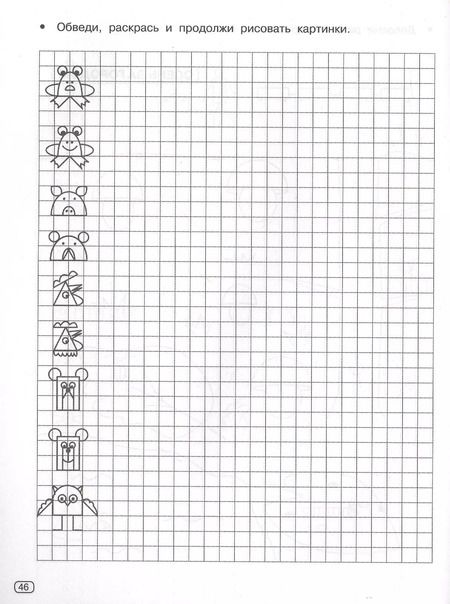 • Обведи, раскрась и продолжи рисовать картинки.
46